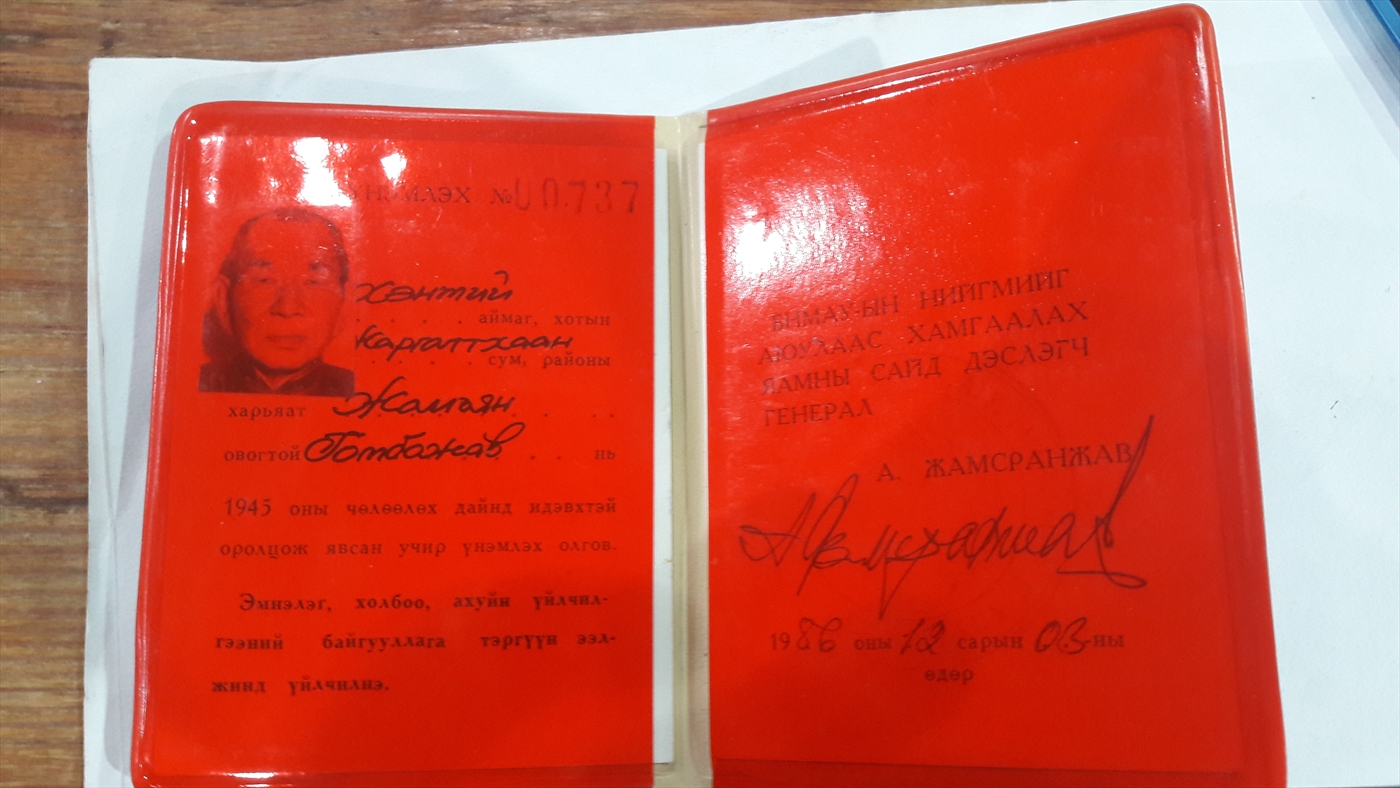 ҮНЭМЛЭХ №00737
Хэнтий
. . . . аймаг, хотын
. . . . . сум, районы
харьяат Жамъян . . . .
овогтой Гомбожав . . . нь
1945 оны чөлөөлөх дайнд идэвхтэй
оролцож явсан учир үнэмлэх олгов.
Эмнэлэг, холбоо, ахуйн үйлчил-
гээний байгууллага тэргүүн ээл-
жинд үйлчилнэ.
БНМАУ-ЫН НИЙГМИЙГ
АЮУЛААС ХАМГААЛАХ
ЯАМНЫ САЙД ДЭСЛЭГЧ
ГЕНЕРАЛ
А. ЖАМСРАНЖАВ
1986 оны 12 сарын 03-ны
өдөр